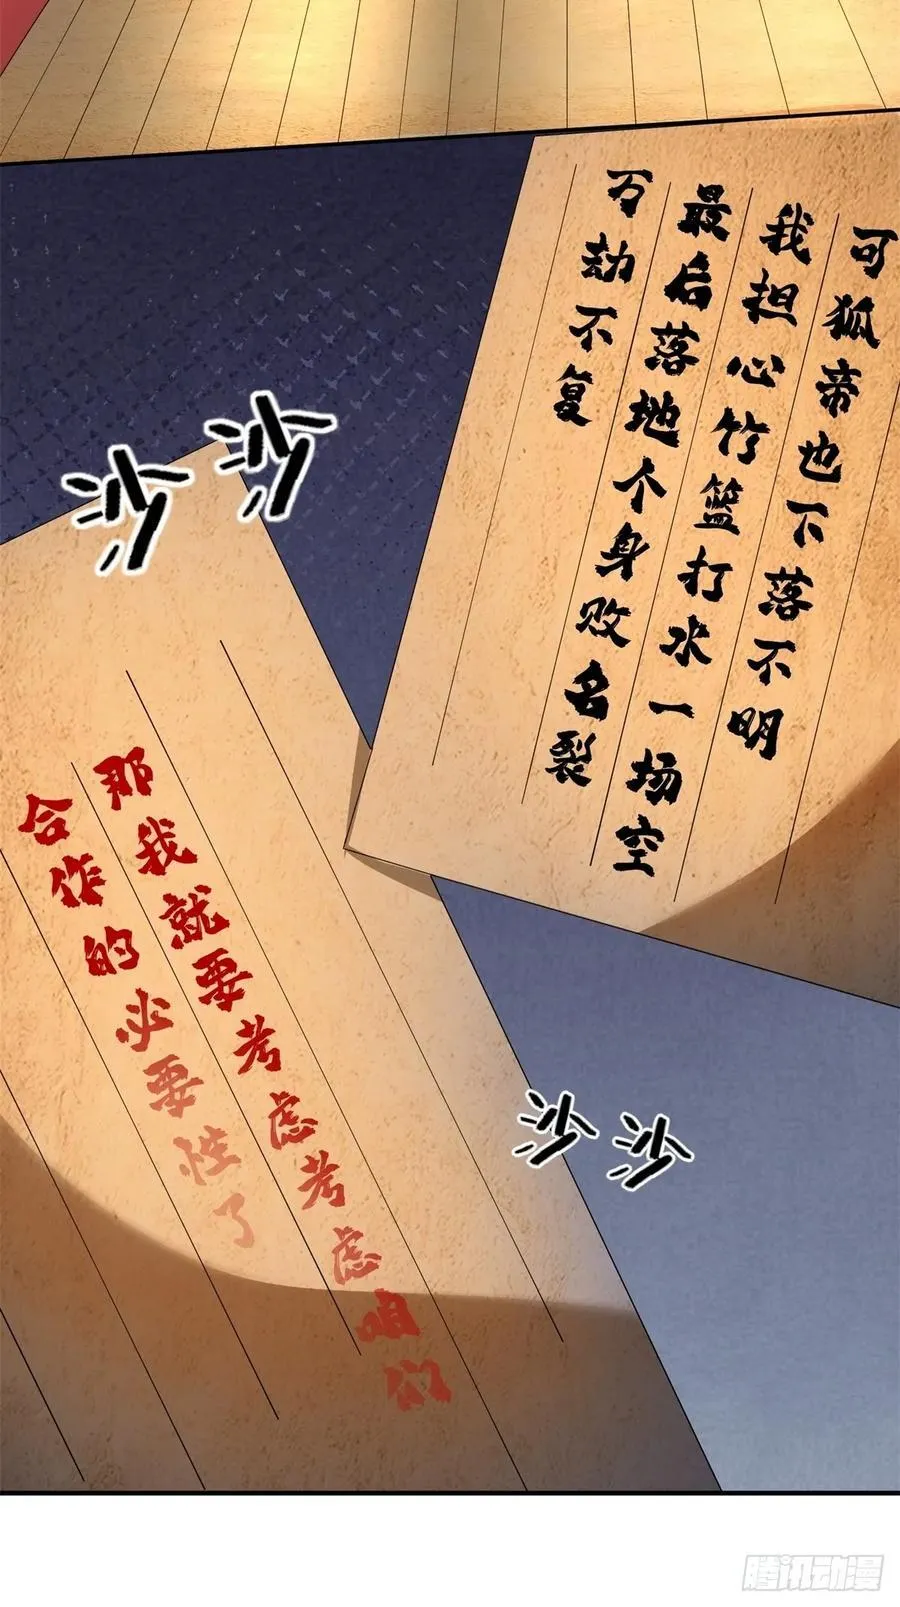 可狐帝也下落不明
我担心竹篮打水一场空
最后落地个身败名裂
万劫不复
沙沙
那我就要考虑考虑咱们
合作的必要性了
沙沙
腾讯动漫